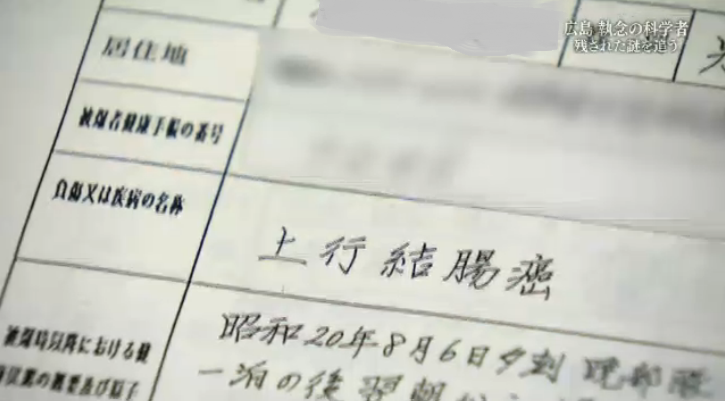 広島 執念の科学者
残された謎を追う
居住地
被爆者健康手帳の番号
負傷又は疾病の名称
上行結腸癌
被爆時以降における健
昭和20年8月6日夕刻
一泊の後翌朝から